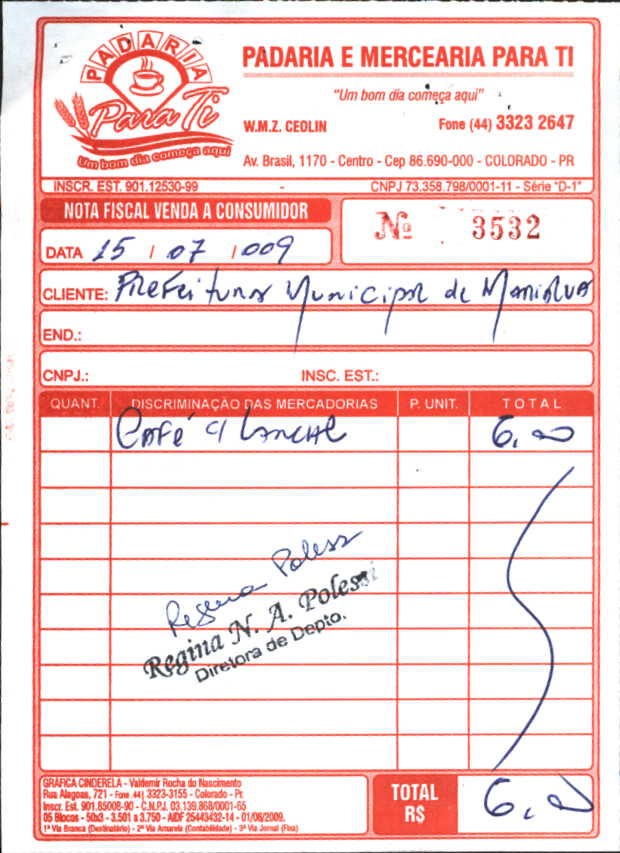 PADARIA
Para Ti
Um bom dia começa aqui
PADARIA E MERCEARIA PARA TI
"Um bom dia começa aqui"
W.M.Z. CEOLIN Fone (44) 3323 2647
Av. Brasil, 1170 - Centro - Cep 86.690-000 - COLORADO - PR
INSCR. EST. 901.12530-99 - CNPJ 73.358.798/0001-11 - Série "D-1"
NOTA FISCAL VENDA A CONSUMIDOR
Nº 3532
DATA 15 / 07 / 009
CLIENTE: Prefeitura Municipal de
END.:
CNPJ.: INSC. EST.:
QUANT. DISCRIMINAÇÃO DAS MERCADORIAS P. UNIT. TOTAL
Café c/ Lanche 6,00
Regina Polessi
Regina N. A. Polessi
Diretora de Depto.
GRÁFICA CINDERELA - Valdemir Rocha do Nascimento
Rua Alagoas, 721 - Fone (44) 3323-3155 - Colorado - Pr.
Inscr. Est. 901.85008-90 - C.N.P.J. 03.139.868/0001-65
05 Blocos - 50x3 - 3.501 a 3.750 - AIDF 25443432-14 - 01/06/2009.
1ª Via Branca (Destinatário) - 2ª Via Amarela (Contabilidade) - 3ª Via Jornal (Fixa)
TOTAL
R$ 6,00